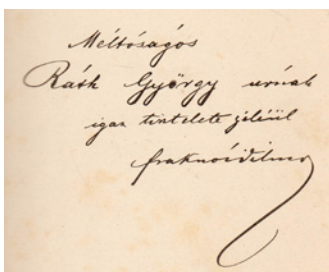 Méltóságos
Ráth György urnak
igaz tisztelete jeléül
Fraknói Vilmos